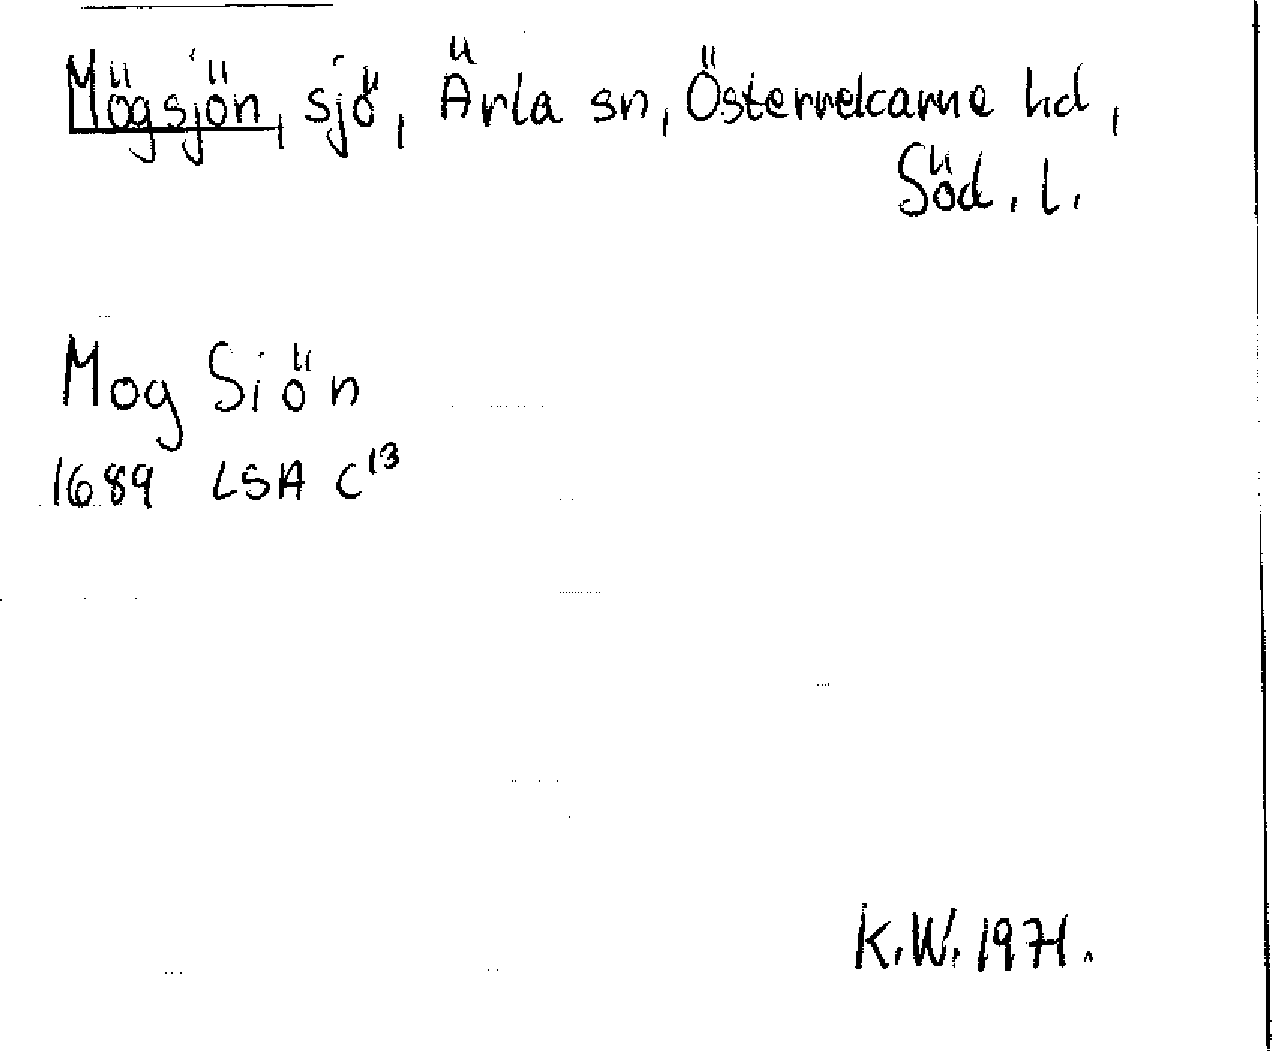 Mögsjön, sjö, Ärla sn, Österrekarne hd,
Söd. l.
Mog Siön
1689 LSA C¹³
K.W. 1971.